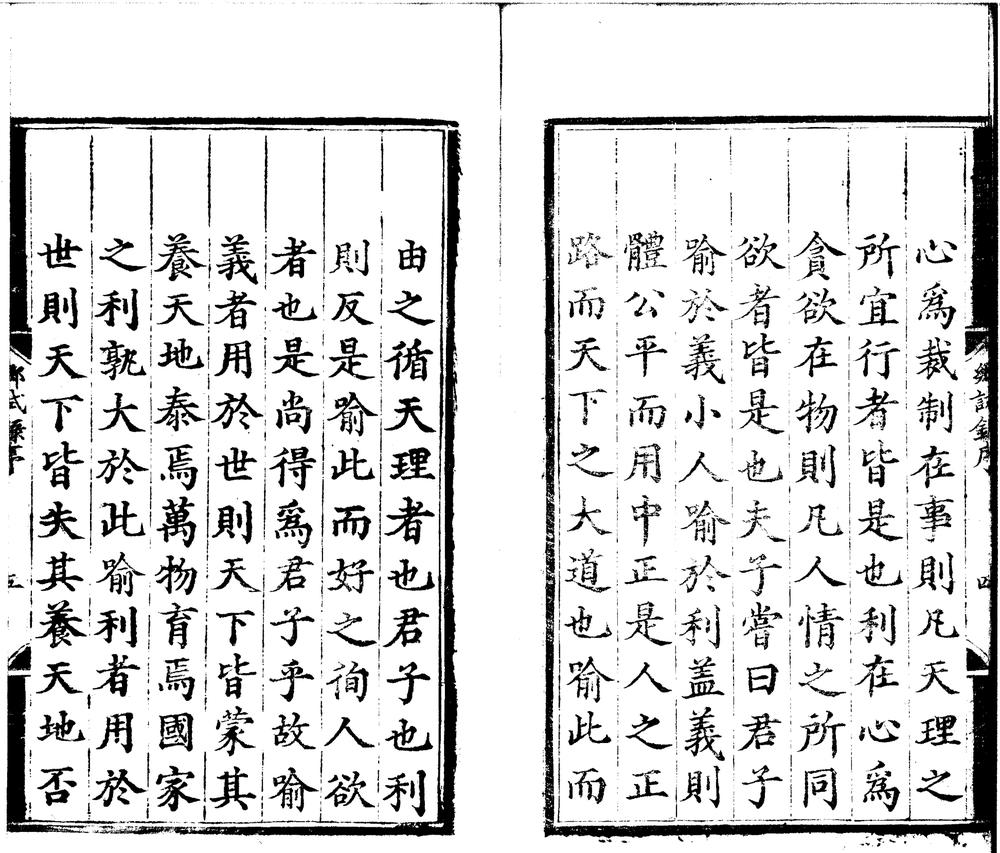 心爲裁制在事則凡天理之
所宜行者皆是也利在心爲
貪欲在物則凡人情之所同
欲者皆是也夫子嘗曰君子
喻於義小人喻於利蓋義則
體公平而用中正是人之正
路而天下之大道也喻此而
由之循天理者也君子也利
則反是喻此而好之徇人欲
者也是尚得爲君子乎故喻
義者用於世則天下皆蒙其
養天地泰焉萬物育焉國家
之利孰大於此喻利者用於
世則天下皆失其養天地否